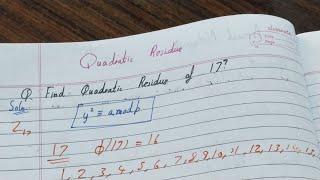 Quadratic Residue
Q. Find Quadratic Residue of 17?
Soln
y² ≡ a mod p
Z₁₇
17 ϕ(17) = 16
1, 2, 3, 4, 5, 6, 7, 8, 9, 10, 11, 12, 13, 14, 15,